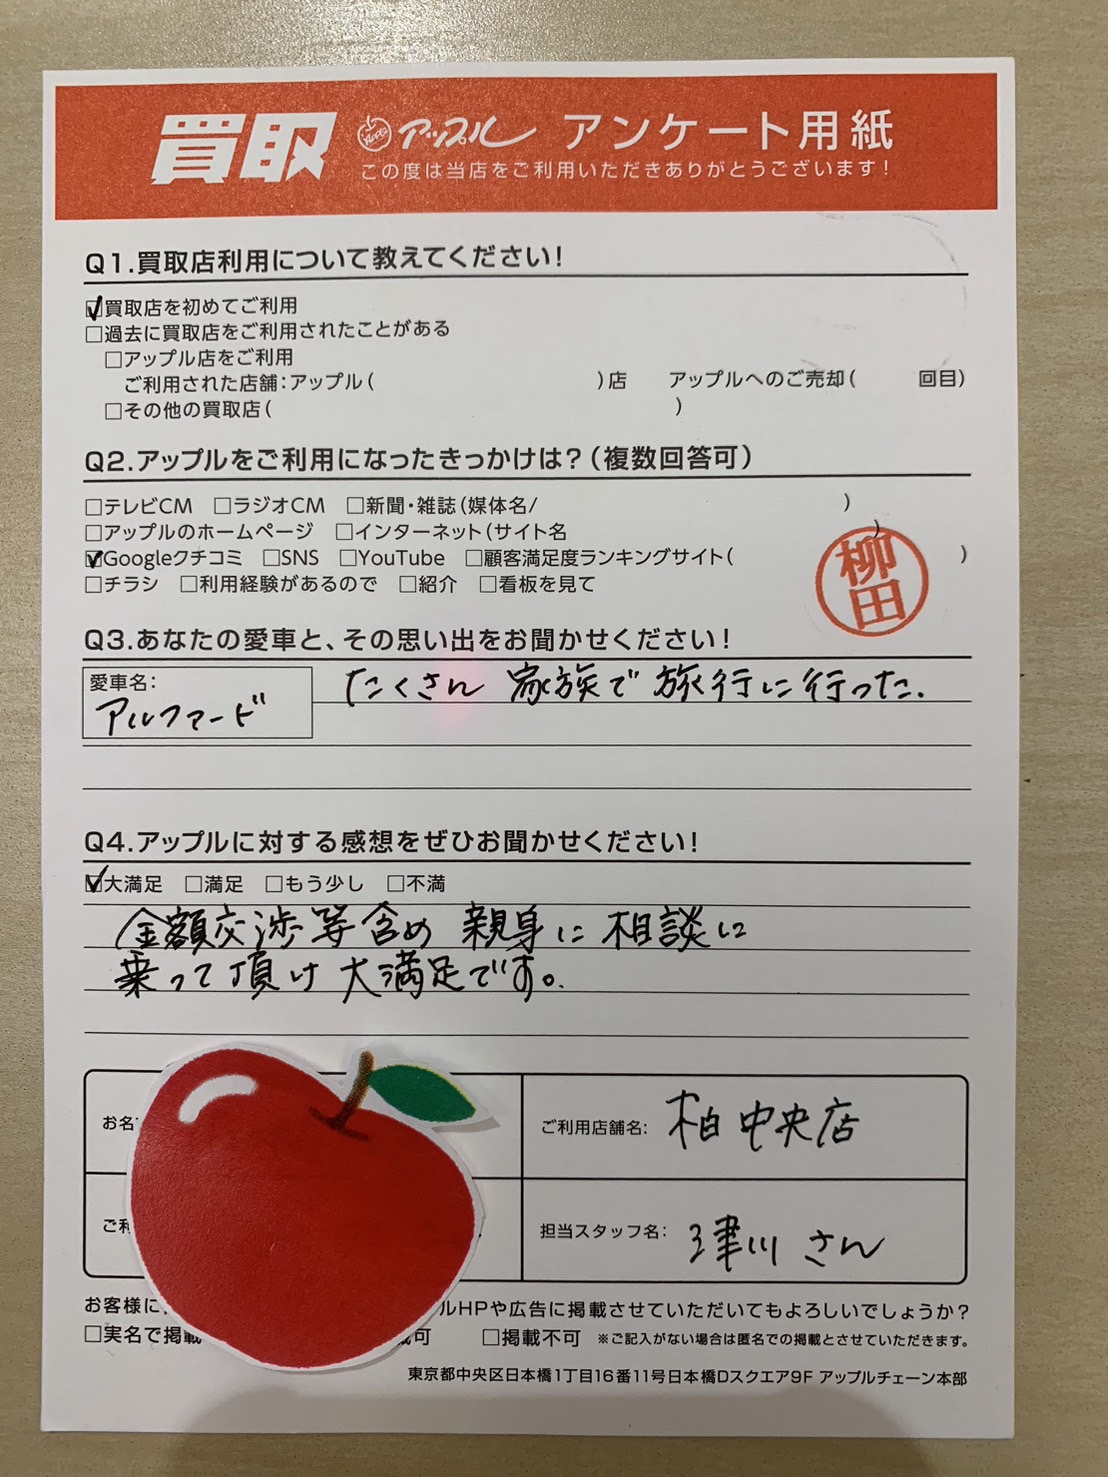 買取 アップル アンケート用紙
この度は当店をご利用いただきありがとうございます!
Q1.買取店利用について教えてください!
☑買取店を初めてご利用
□過去に買取店をご利用されたことがある
□アップル店をご利用
ご利用された店舗:アップル( )店 アップルへのご売却( 回目)
□その他の買取店( )
Q2.アップルをご利用になったきっかけは?(複数回答可)
□テレビCM □ラジオCM □新聞・雑誌(媒体名/ )
□アップルのホームページ □インターネット(サイト名 )
☑Googleクチコミ □SNS □YouTube □顧客満足度ランキングサイト( )
□チラシ □利用経験があるので □紹介 □看板を見て
柳田
Q3.あなたの愛車と、その思い出をお聞かせください!
愛車名:
アルファード
たくさん 家族で 旅行に行った.
Q4.アップルに対する感想をぜひお聞かせください!
☑大満足 □満足 □もう少し □不満
金額交渉等含め 親身に 相談に
乗って頂け大満足です。
お名
ご利用店舗名: 柏中央店
ご利
担当スタッフ名: 津川さん
お客様に ルHPや広告に掲載させていただいてもよろしいでしょうか?
□実名で掲載 可 □掲載不可 ※ご記入がない場合は匿名での掲載とさせていただきます。
東京都中央区日本橋1丁目16番11号日本橋Dスクエア9F アップルチェーン本部